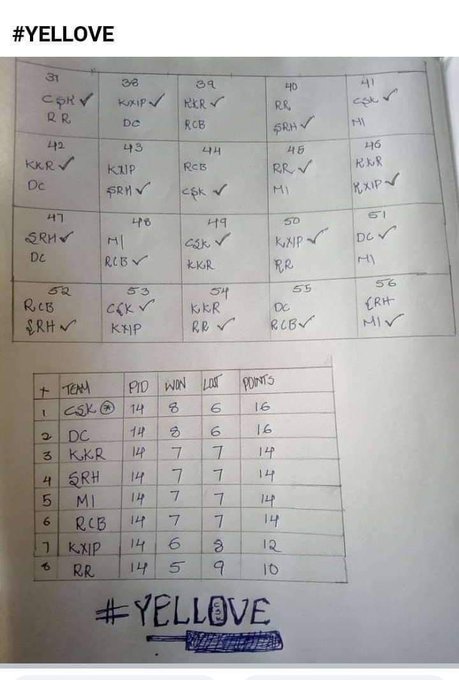 #YELLOVE
37 38 39 40 41
CSK ✓ KXIP ✓ KKR ✓ RR CSK ✓
RR DC RCB SRH ✓ MI
42 43 44 45 46
KKR ✓ KXIP RCB RR ✓ KKR
DC SRH ✓ CSK ✓ MI KXIP ✓
47 48 49 50 51
SRH ✓ MI CSK ✓ KXIP ✓ DC ✓
DC RCB ✓ KKR RR MI
52 53 54 55 56
RCB CSK ✓ KKR DC SRH
SRH ✓ KXIP RR ✓ RCB ✓ MI ✓
+ TEAM PLD WON LOST POINTS
1 CSK 14 8 6 16
2 DC 14 8 6 16
3 KKR 14 7 7 14
4 SRH 14 7 7 14
5 MI 14 7 7 14
6 RCB 14 7 7 14
7 KXIP 14 6 8 12
8 RR 14 5 9 10
#YELLOVE
CSK